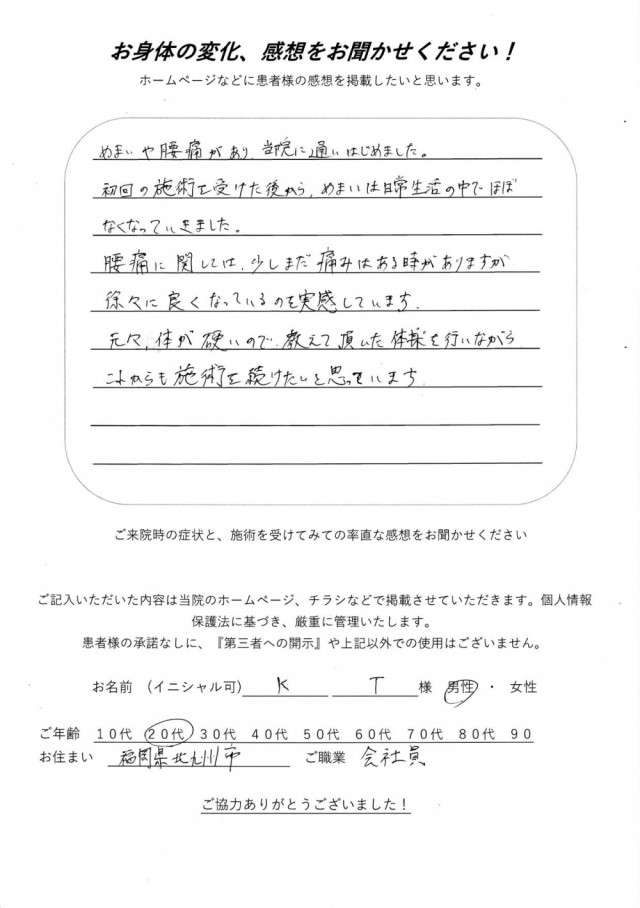 お身体の変化、感想をお聞かせください！
ホームページなどに患者様の感想を掲載したいと思います。
めまいや腰痛があり、当院に通いはじめました。
初回の施術を受けた後から、めまいは日常生活の中でほぼ
なくなっていきました。
腰痛に関しては、少しまだ痛みはある時がありますが
徐々に良くなっているのを実感しています。
元々、体が硬いので、教えて頂いた体操を行いながら
これからも施術を続けたいと思っています。
ご来院時の症状と、施術を受けてみての率直な感想をお聞かせください
ご記入いただいた内容は当院のホームページ、チラシなどで掲載させていただきます。個人情報
保護法に基づき、厳重に管理いたします。
患者様の承諾なしに、『第三者への開示』や上記以外での使用はございません。
お名前 （イニシャル可） K T 様 男性 ・ 女性
ご年齢 10代 20代 30代 40代 50代 60代 70代 80代 90
お住まい 福岡県北九州市 ご職業 会社員
ご協力ありがとうございました！